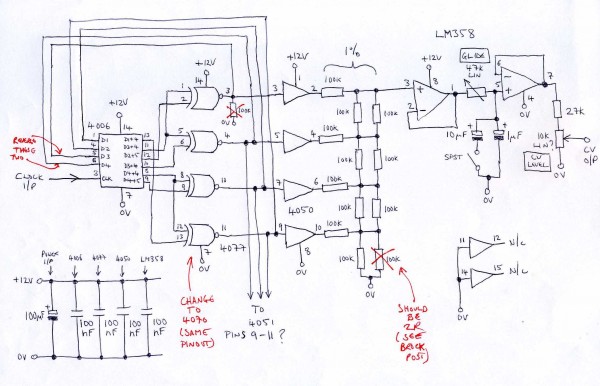 +12V
+12V
1%
LM358
14
+12V
+12V
+12V
GLIDE
47k
LIN
100k
4006
14
100k
D1
D2
D3
D4
CLK
D1+4
D2+4
D2+5
D3+4
D4+4
D4+5
13
11
12
10
8
9
1
4
5
6
3
7
0V
REVERSE
THIS
TWO
CLOCK
I/P
1
2
3
100k
0V
5
6
4
8
9
10
12
13
11
7
0V
4077
3
2
1
5
4
7
6
9
10
8
0V
4050
100k
100k
100k
100k
100k
100k
100k
100k
0V
3
2
8
1
10µF
1µF
SPST
0V
6
5
7
4
0V
27k
10k
LIN?
CV
LEVEL
CV
O/P
0V
11
12
N/C
14
15
N/C
0V
POWER
I/P
4006
4077
4050
LM358
+12V
100µF
100
nF
100
nF
100
nF
100
nF
0V
CHANGE
TO
4070
(SAME
PINOUT)
TO
4051
PINS 9-11?
SHOULD
BE
2R
(SEE
BELOW
POST)